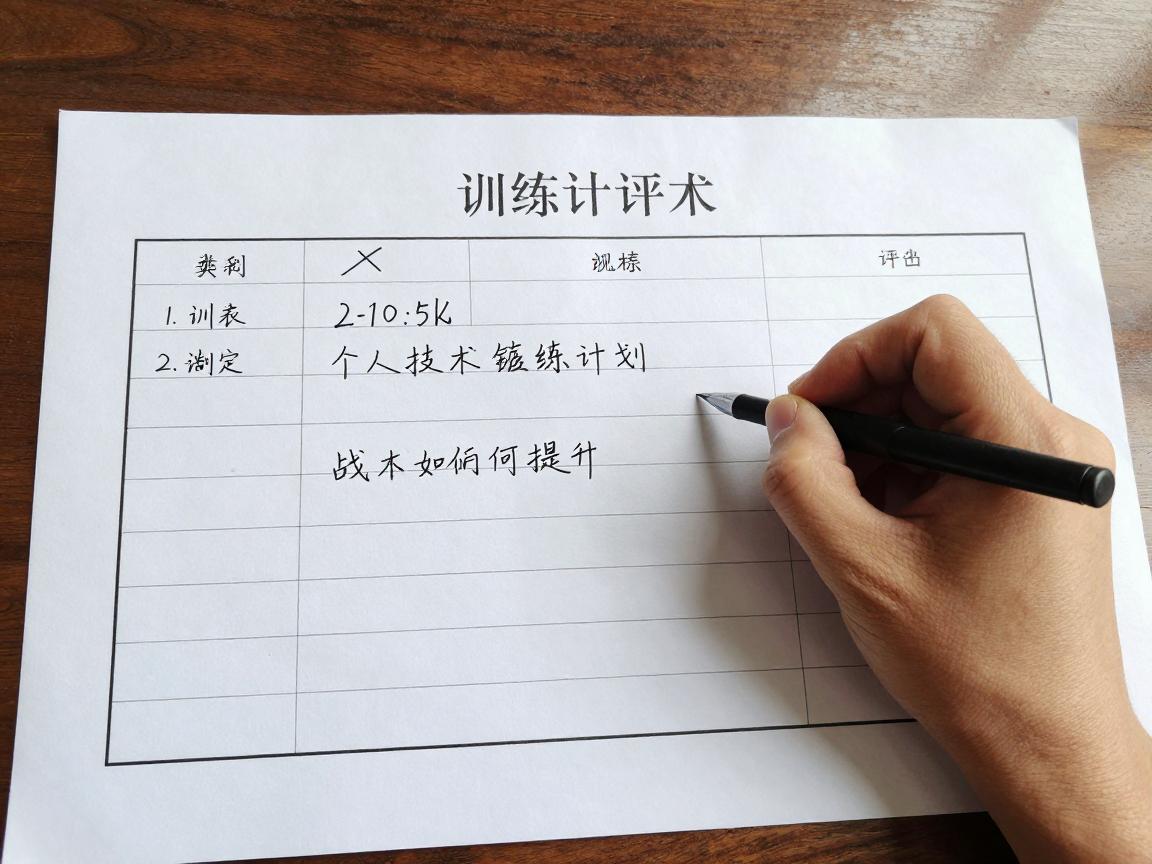 训练计评术
类利 × 评出
1. 训表 2-10:5K
2. 定 个人技术 练计划
战木如何提升